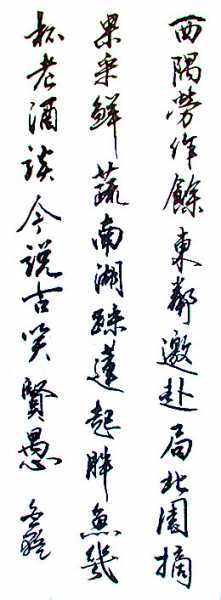 西隅勞作餘東鄰邀赴局北園摘
果采鮮蔬南湖踩蓮起胖魚幾
杯老酒談今説古笑賢愚